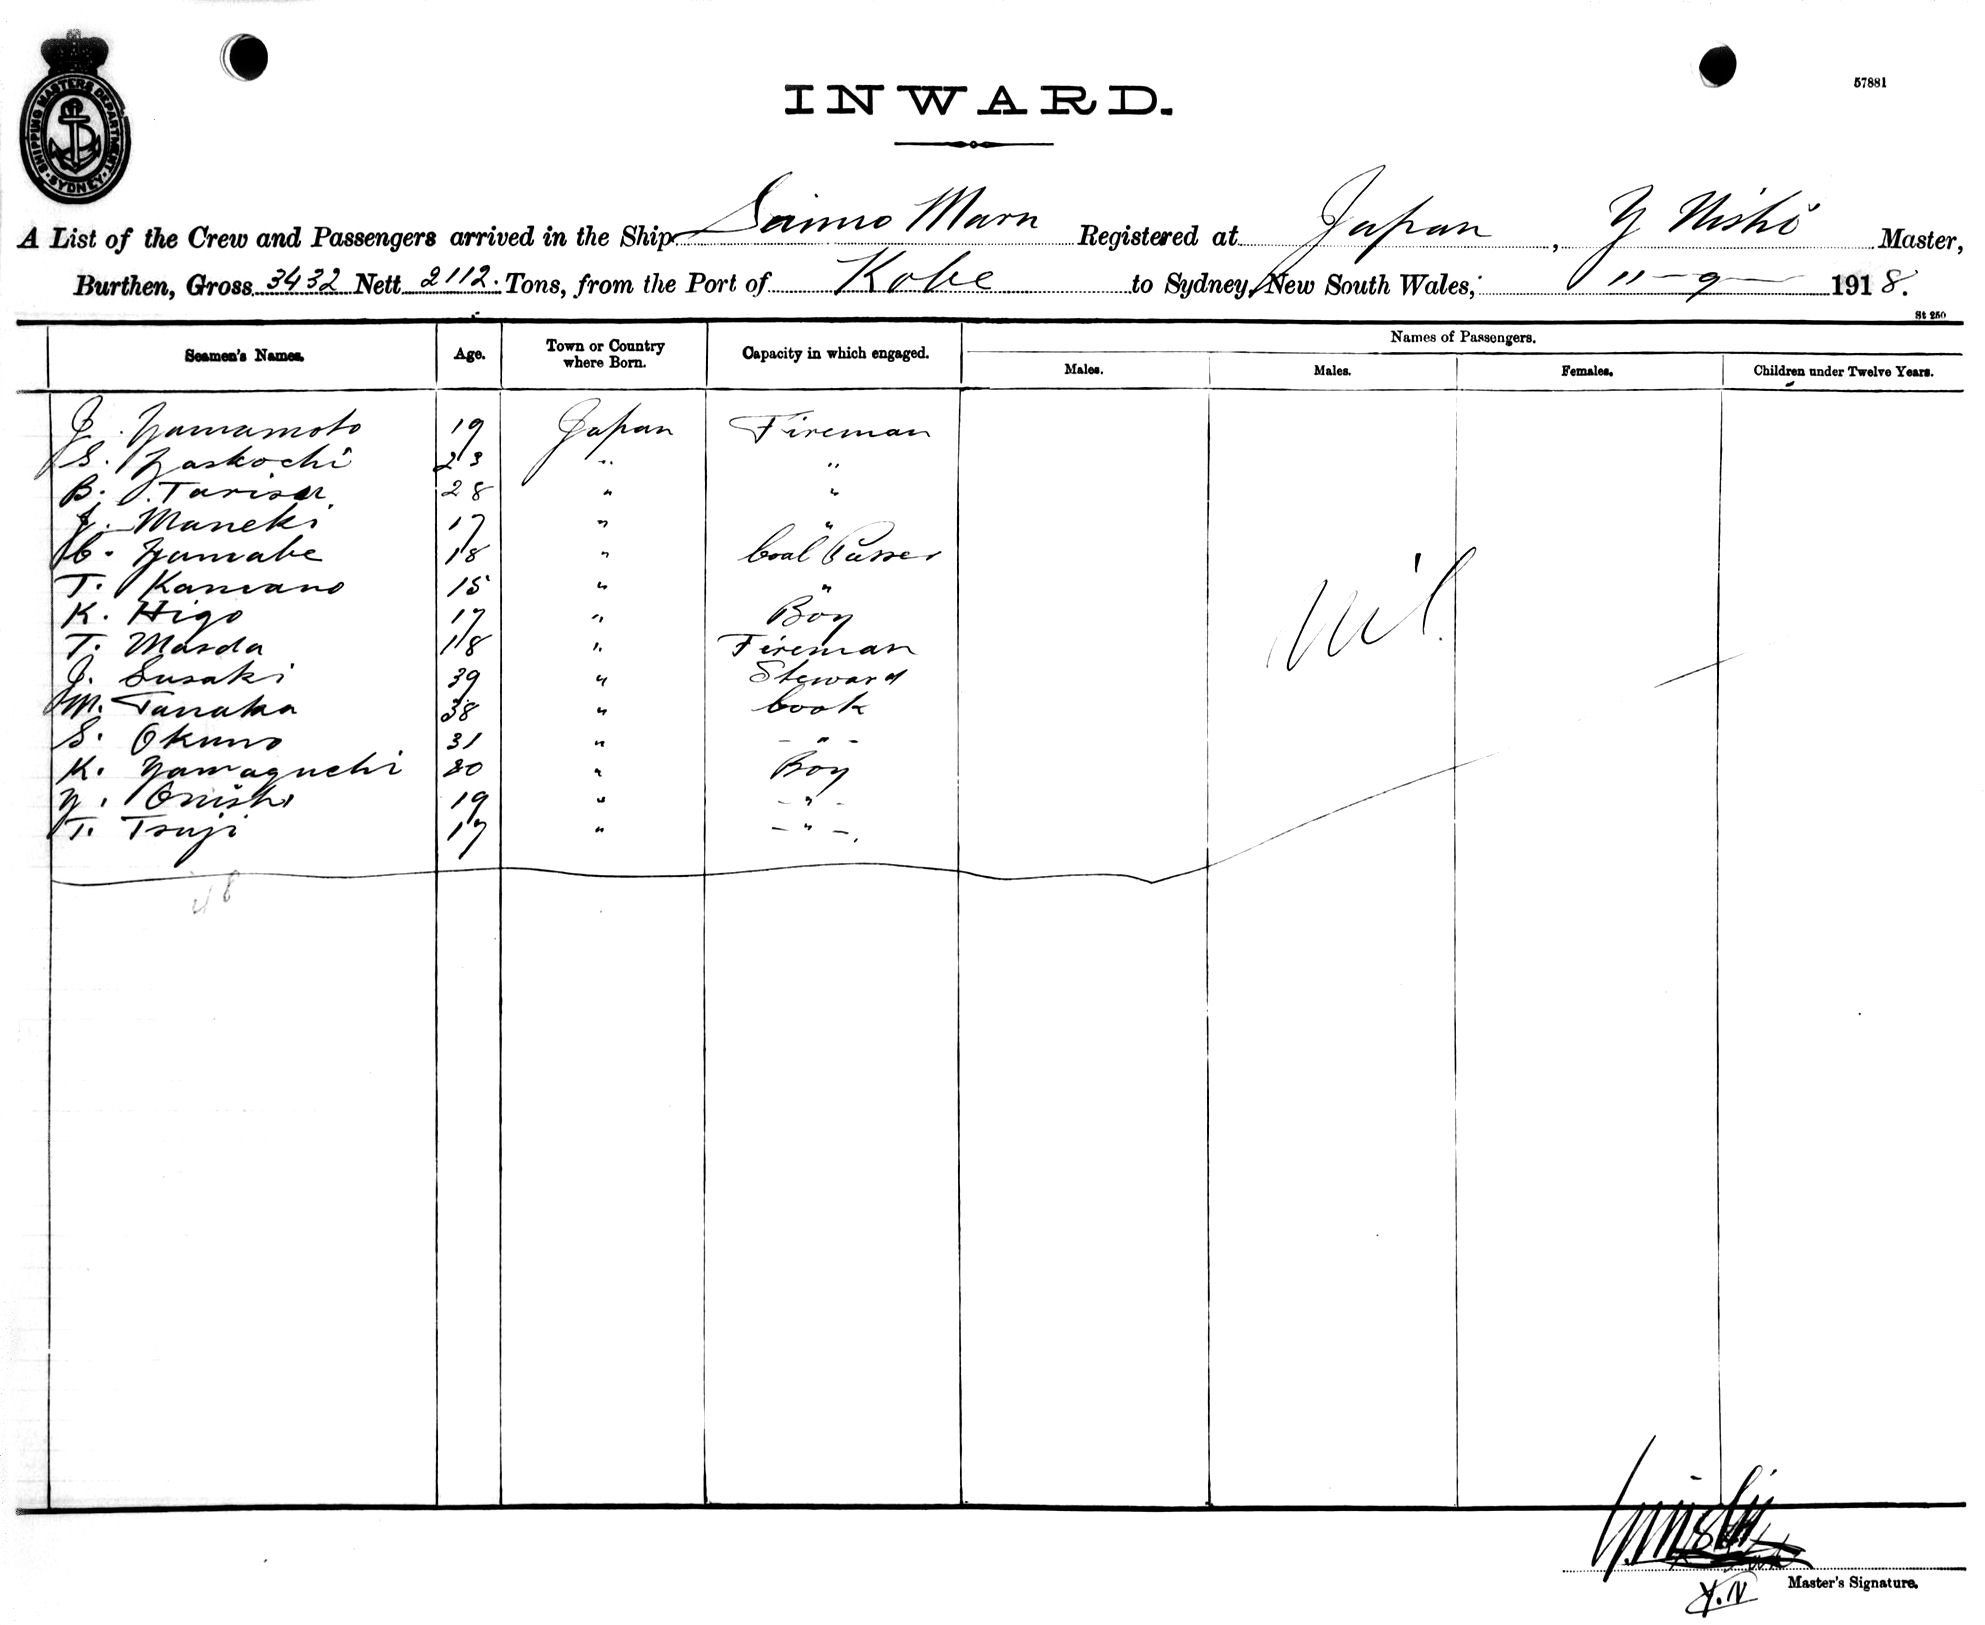 SHIPPING MASTERS DEPARTMENT SYDNEY
57881
INWARD.
A List of the Crew and Passengers arrived in the Ship Maru Registered at Japan, Y Nishi Master,
Burthen, Gross 3432 Nett 2112. Tons, from the Port of Kobe to Sydney, New South Wales, 11-9- 1918.
St 250
Seamen's Names. Age. Town or Country where Born. Capacity in which engaged. Names of Passengers.
Males. Males. Females. Children under Twelve Years.
J. Yamamoto 19 Japan Fireman
S. Yaskochi 23 " "
B. 28 " "
J. Maneki 17 " "
C. Yamabe 18 " Coal Passer
T. Kawano 15 " "
K. Higo 17 " Boy
T. Masda 18 " Fireman
J. Susaki 39 " Steward
M. Tanaka 38 " Cook
S. Okuno 31 " - " -
K. Yamaguchi 20 " Boy
Y. Onishi 19 " - " -
T. Tsuji 17 " - " -
Nil
48
Y. Nishi
Master's Signature.
Y.N